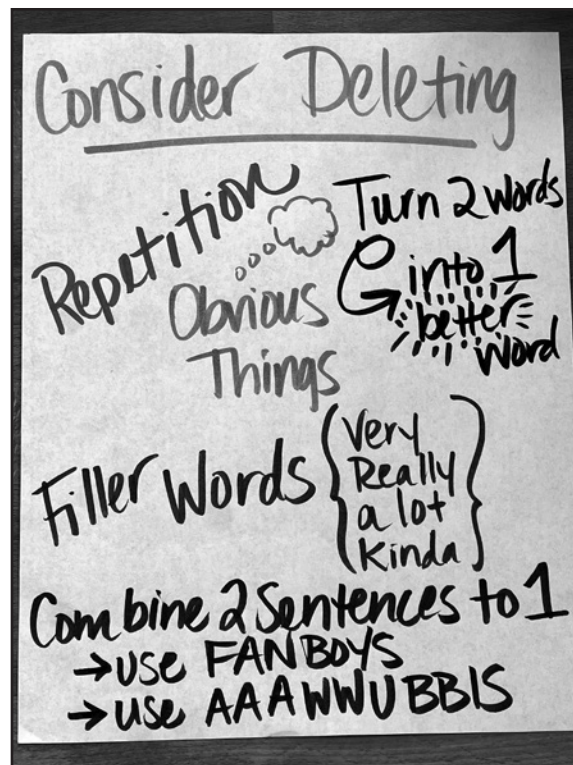 Consider Deleting
Repetition
Obvious
Things
Turn 2 words
into 1
better
word
Filler Words
Very
Really
a lot
Kinda
Combine 2 Sentences to 1
→ use FANBOYS
→ use AAAWWUBBIS